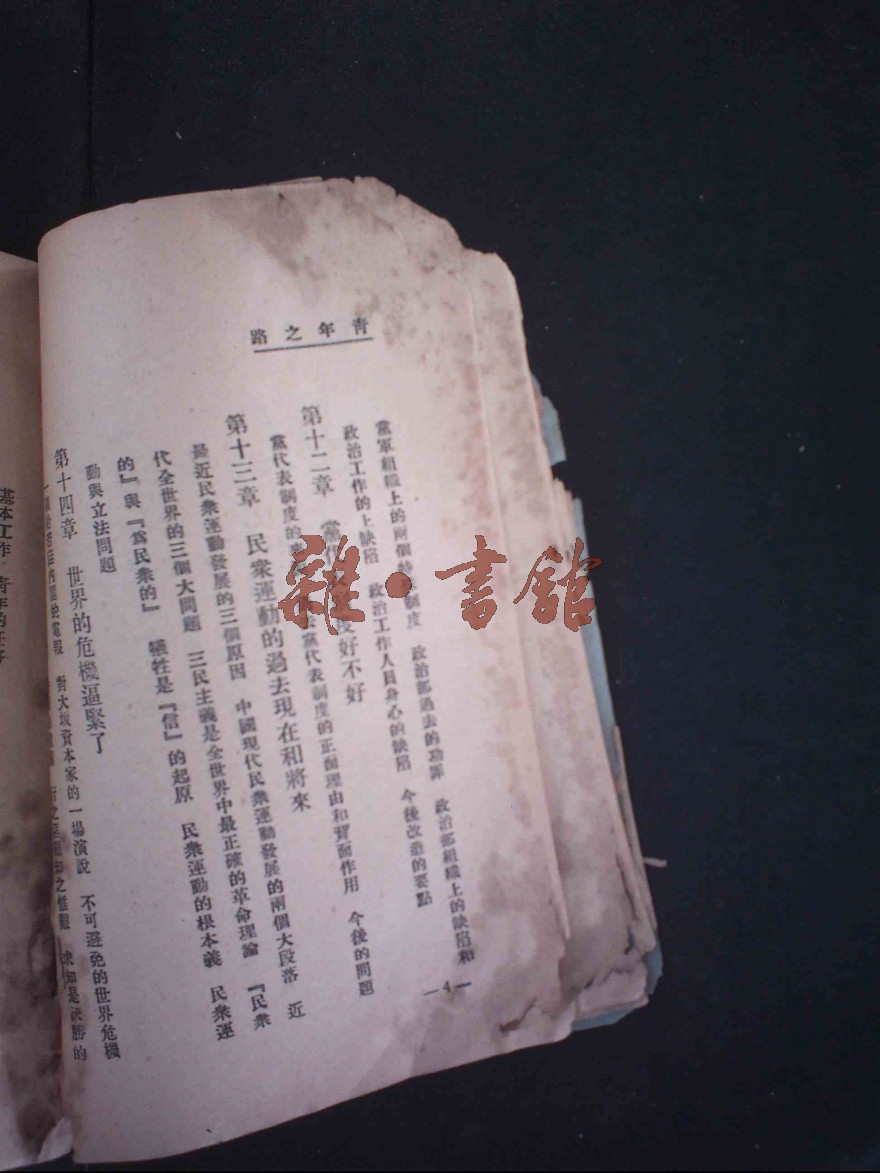 青年之路
黨軍組織上的兩個特殊制度 政治部過去的功罪 政治部組織上的缺陷和
政治工作的上缺陷 政治工作人員身心的缺陷 今後改造的要點
第十二章 黨代表制度好不好
黨代表制度的 黨代表制度的正面理由和背面作用 今後的問題
第十三章 民衆運動的過去現在和將來
最近民衆運動發展的三個原因 中國現代民衆運動發展的兩個大段落 近
代全世界的三個大問題 三民主義是全世界中最正確的革命理論 『民衆
的』與『爲民衆的』 犧牲是『信』的起原 民衆運動的根本義 民衆運
動與立法問題
第十四章 世界的危機逼緊了
電報 對大坂資本家的一場演說 不可避免的世界危機
求知是決勝的
—4—
基本工作 青年的
雜·書館